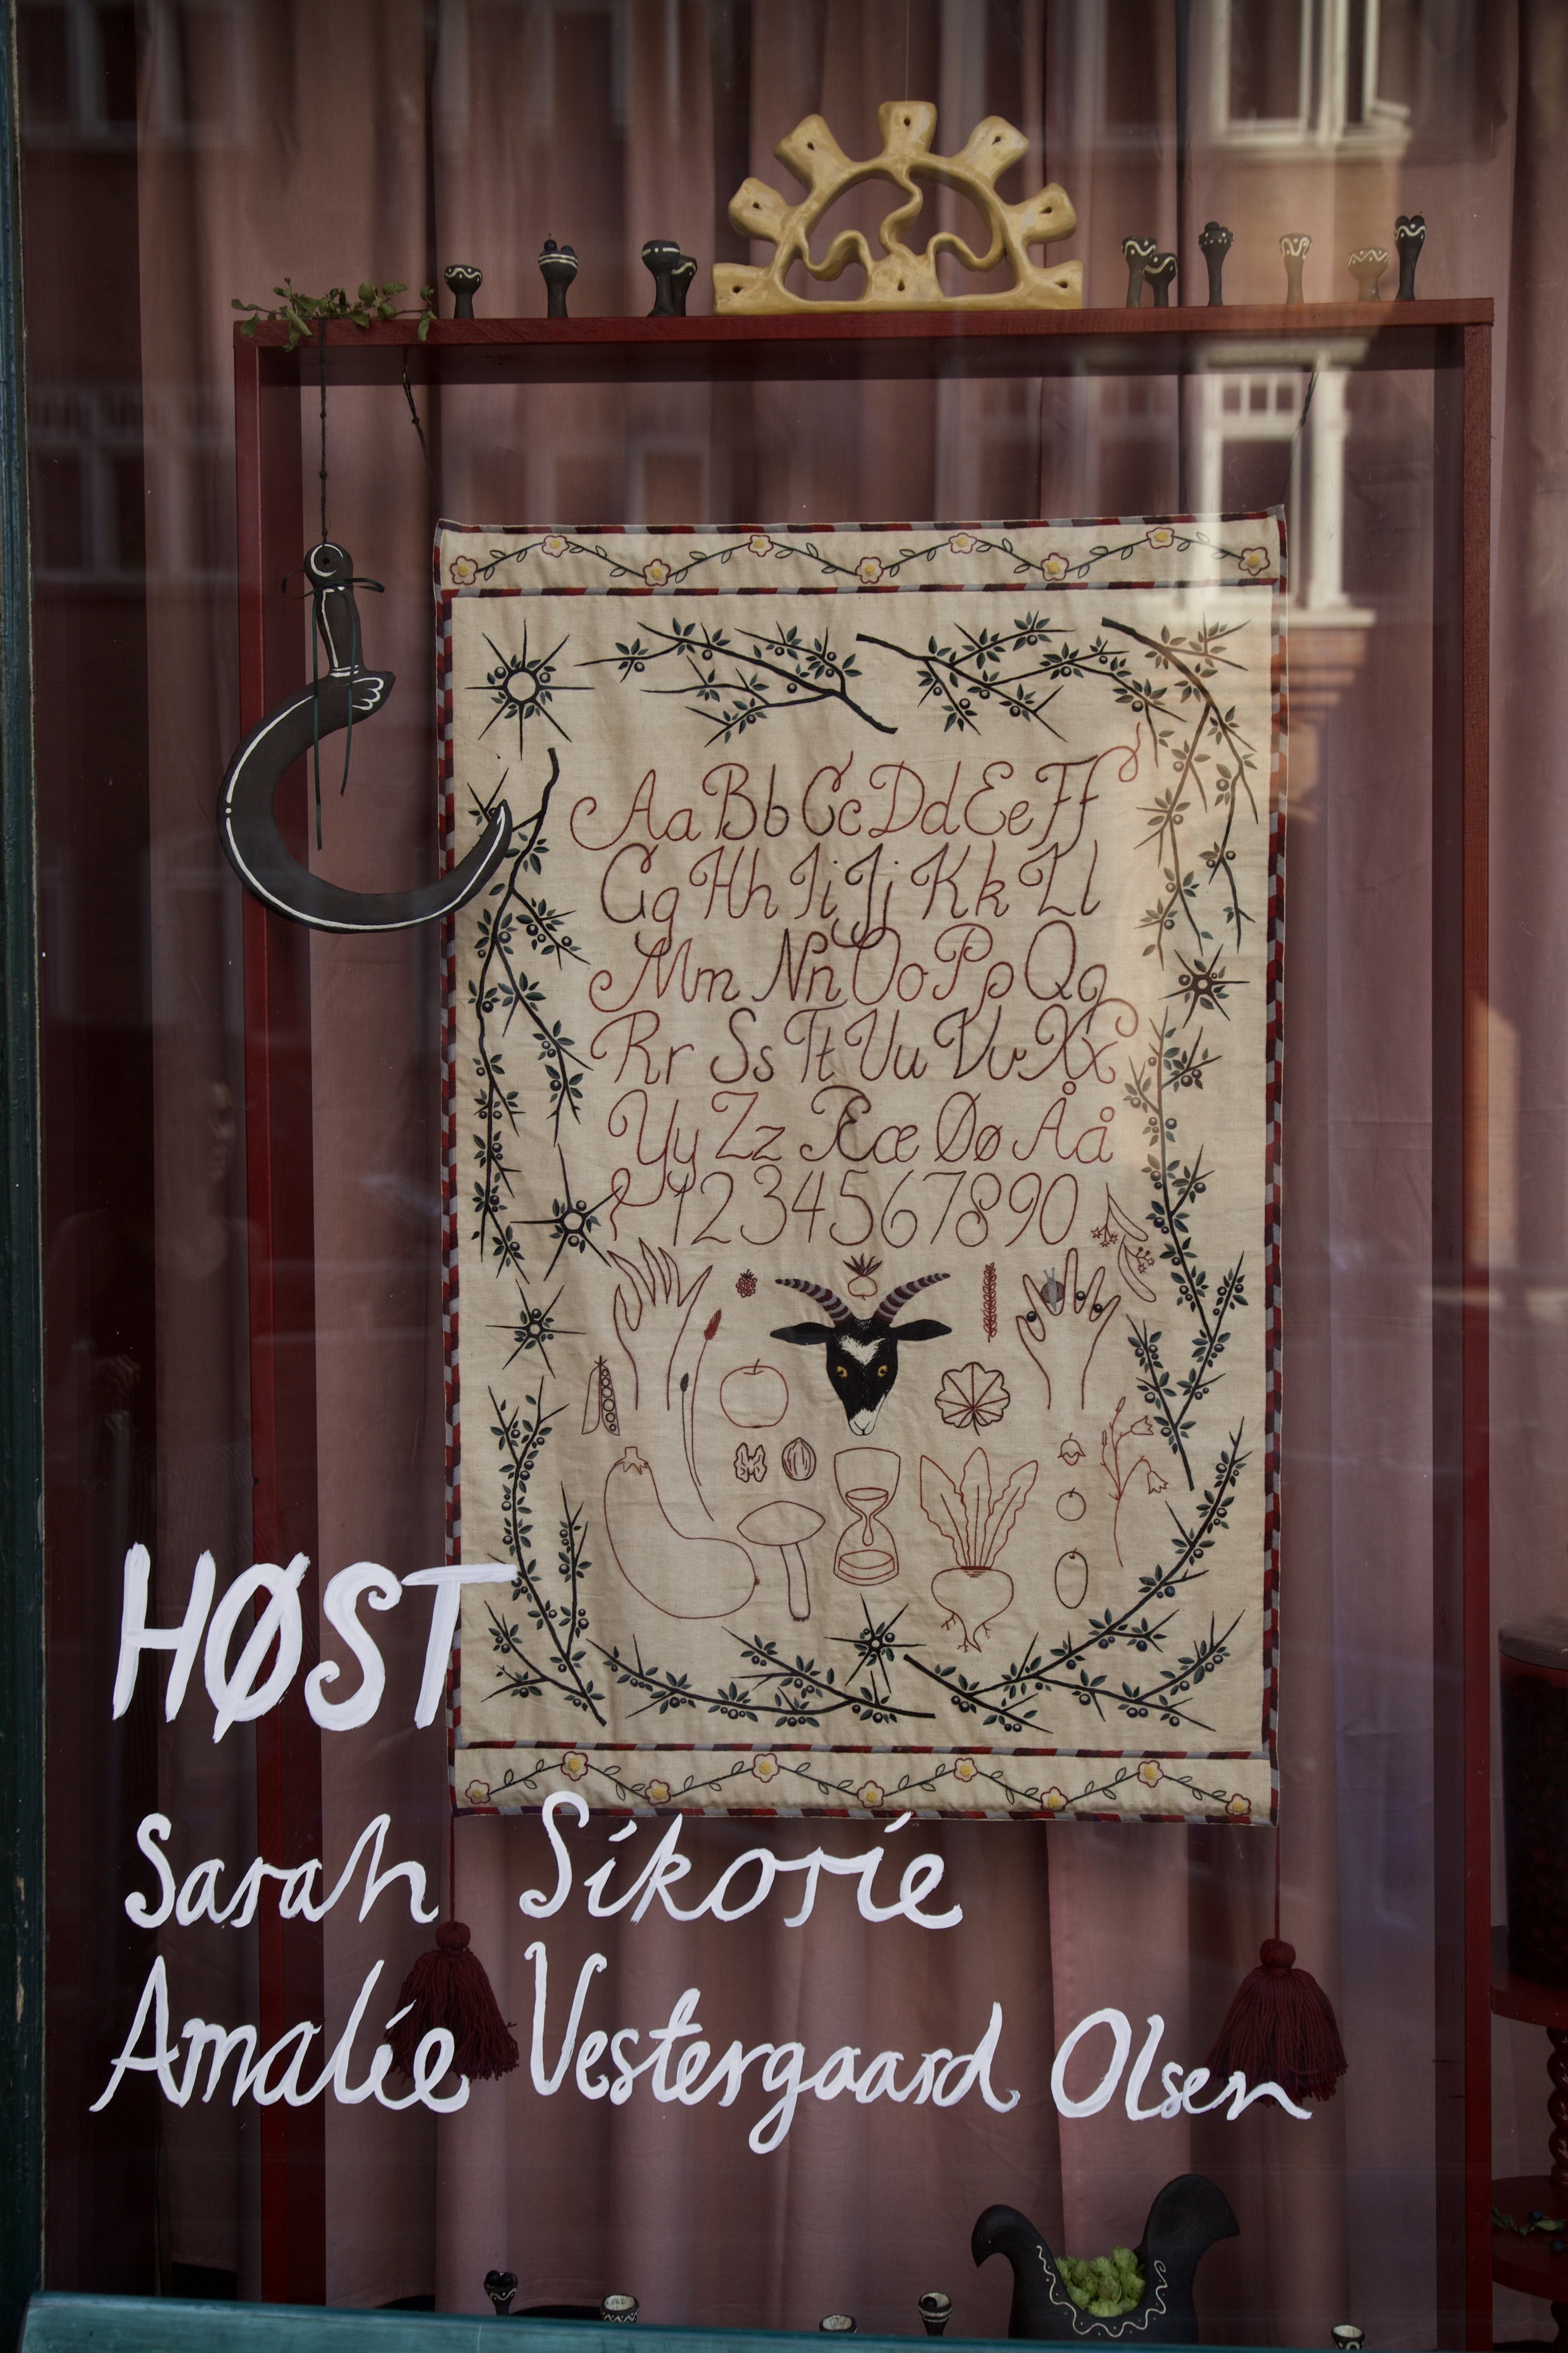 Aa Bb Cc Dd Ee Ff
Gg Hh Ii Jj Kk Ll
Mm Nn Oo Pp Qq
Rr Ss Tt Uu Vv Xx
Yy Zz Ææ Øø Åå
1234567890
HØST
Sarah Sikorie
Amalie Vestergaard Olsen